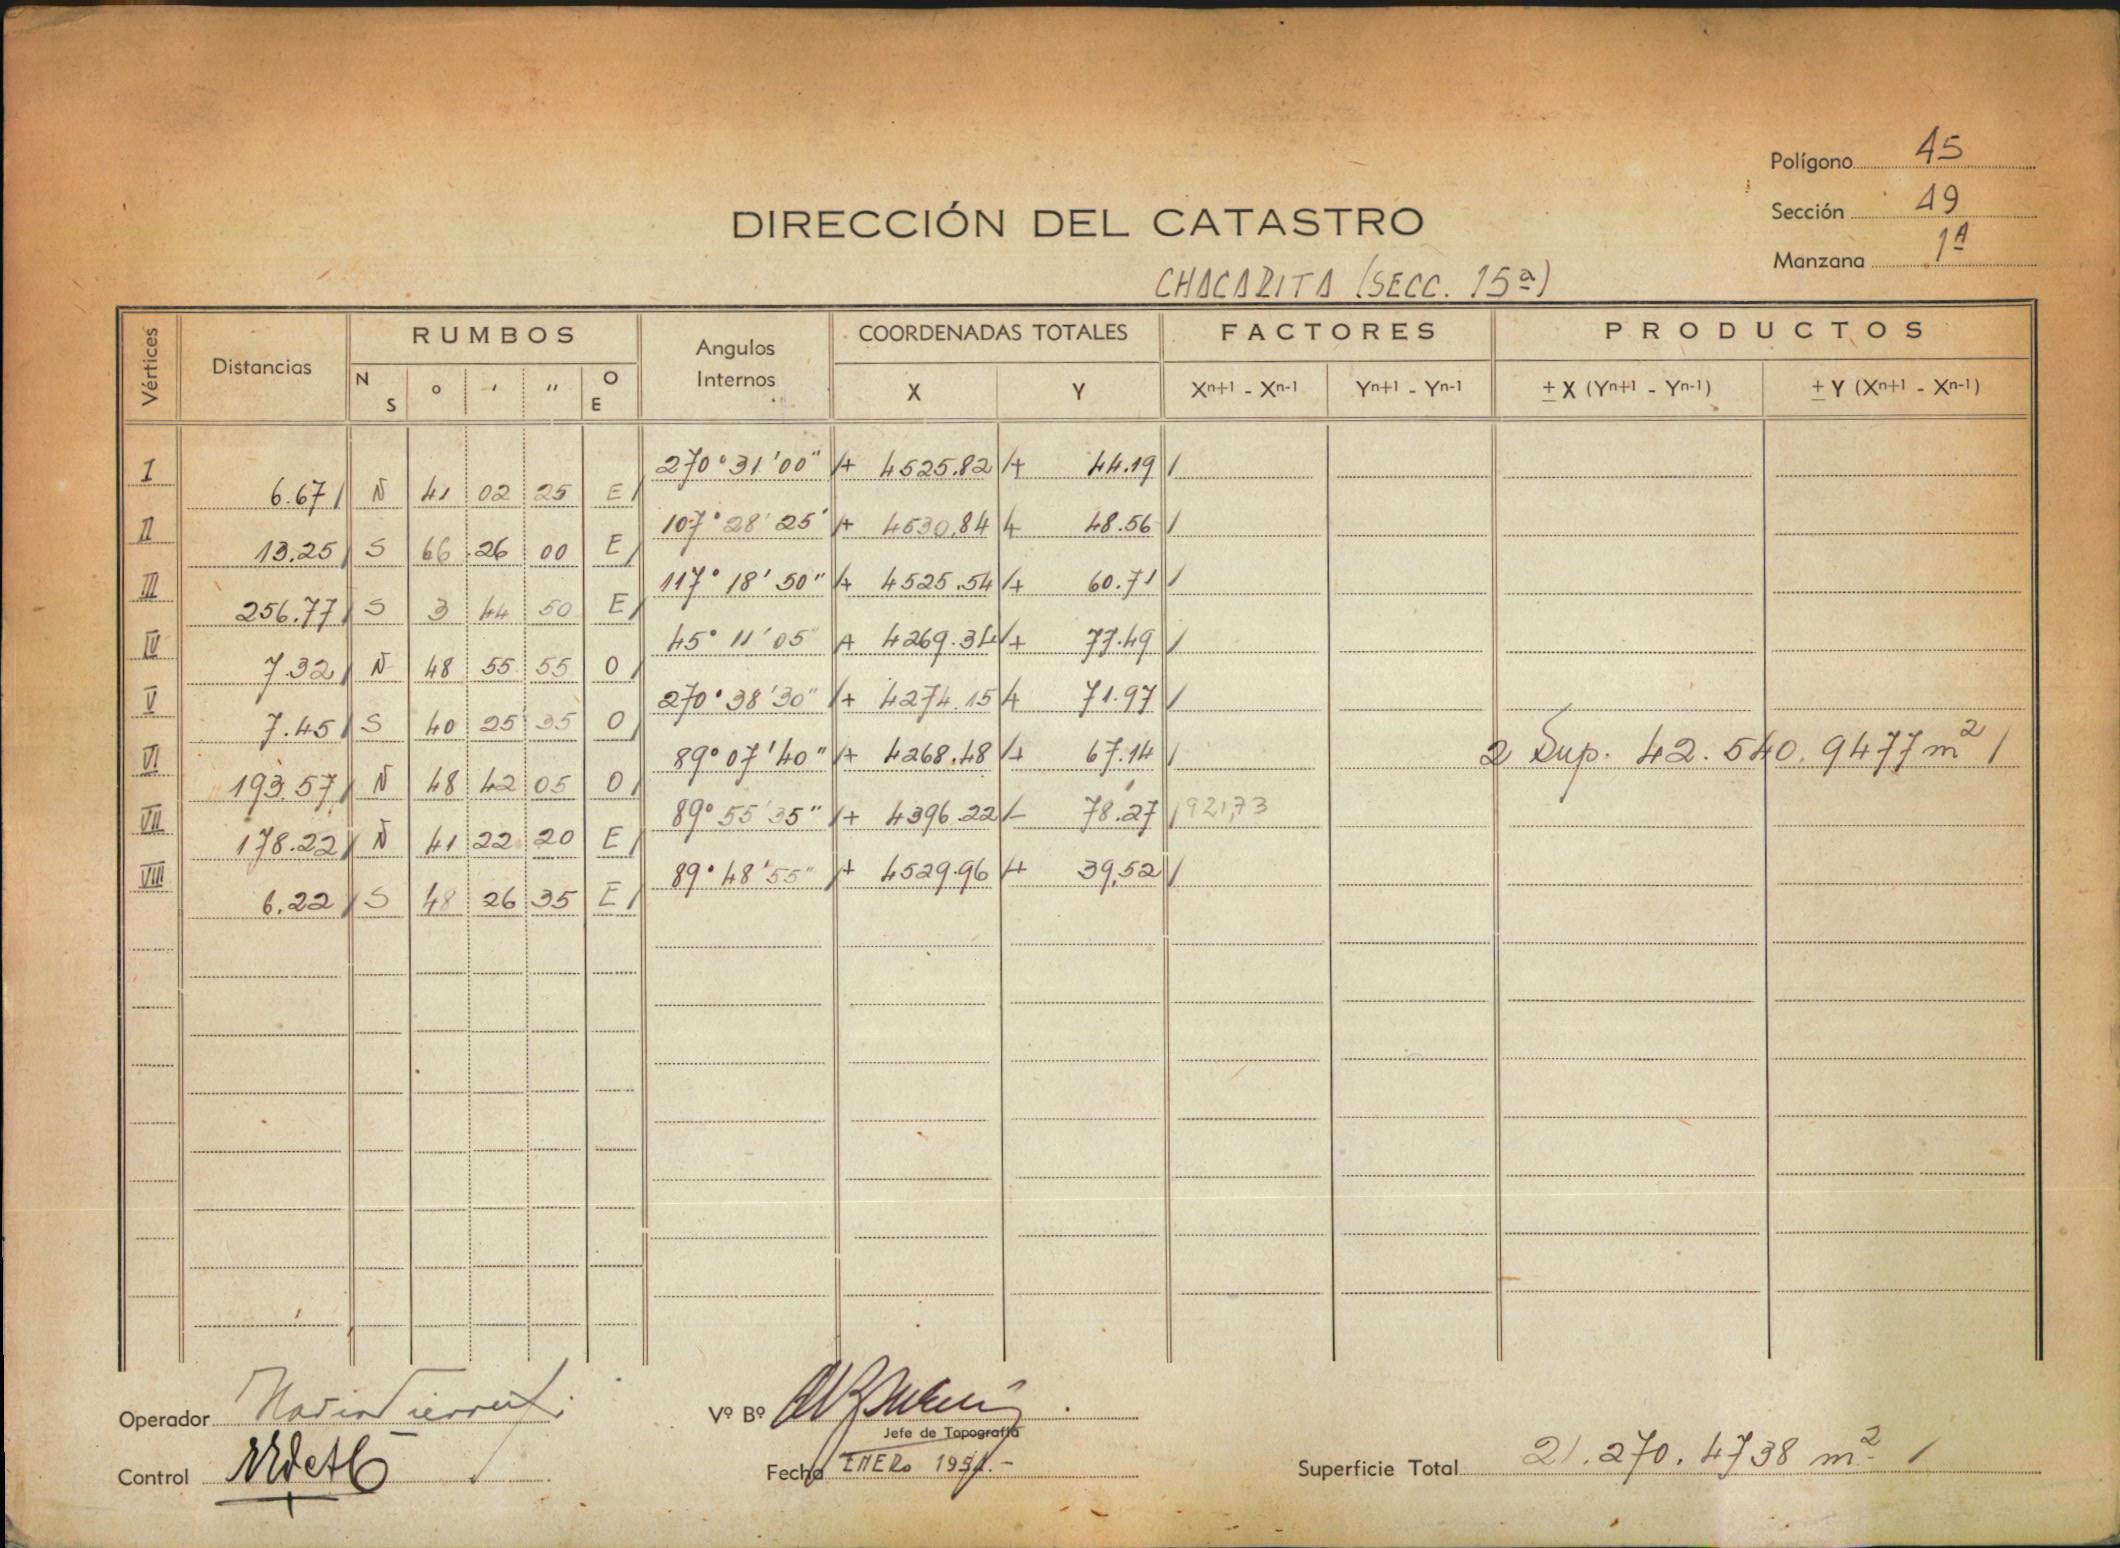 Polígono 15
Sección 19
Manzana 1ª
DIRECCIÓN DEL CATASTRO
CHACARITA (SECC. 15ª)
Vértices Distancias RUMBOS Angulos Internos COORDENADAS TOTALES FACTORES PRODUCTOS
N S o ' '' O E X Y Xn+1 - Xn-1 Yn+1 - Yn-1 ± X (Yn+1 - Yn-1) ± Y (Xn+1 - Xn-1)
I 270°31'00" + 4525.82 + 44.19
6.67 N 41 02 25 E
II 107°28'25" + 4530.84 + 48.56
13.25 S 66 26 00 E
III 117°18'50" + 4525.54 + 60.71
256.77 S 3 44 50 E
IV 45°11'05" + 4269.34 + 77.49
7.32 N 48 55 55 O
V 270°38'30" + 4274.15 + 71.97
7.45 S 40 25 35 O
VI 89°07'40" + 4268.48 + 67.14
2 Sup. 42.540.9477 m²
193.57 N 48 42 05 O
VII 89°55'35" + 4396.22 - 78.27 921,73
178.22 N 41 22 20 E
VIII 89°48'55" + 4529.96 + 39.52
6.22 S 48 26 35 E
Operador
Vº Bº
Jefe de Topografía
Control
Fecha ENERO 1951.-
Superficie Total 21.270.4738 m²